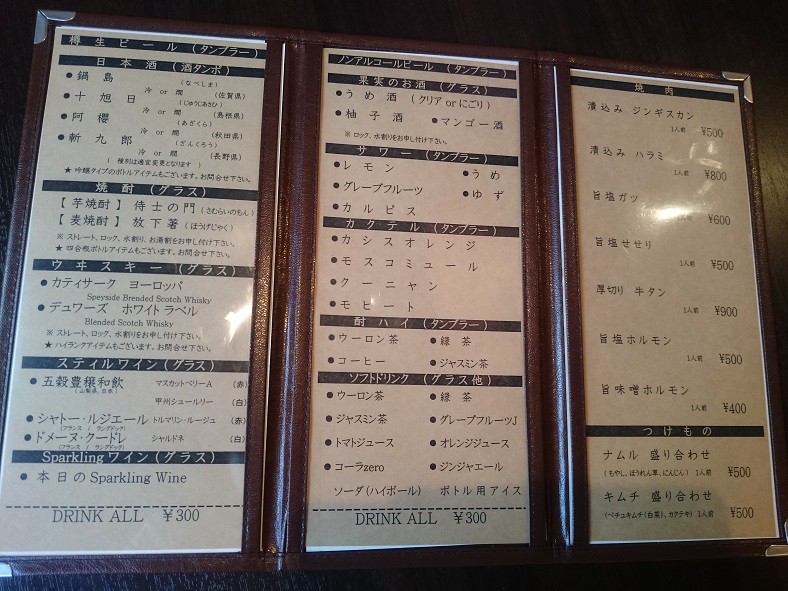 樽生ビール (タンブラー)
日本酒 (酒タンポ)
●鍋島 (なべしま)
冷 or 燗 (佐賀県)
●十旭日 (じゅうじあさひ)
冷 or 燗 (島根県)
●阿櫻 (あざくら)
冷 or 燗 (秋田県)
●斬九郎 (ざんくろう)
冷 or 燗 (長野県)
( 種別は適宜変更となります )
★ 吟醸タイプのボトルアイテムもございます。お問合せ下さい。
焼酎 (グラス)
【芋焼酎】 侍士の門 (さむらいのもん)
【麦焼酎】 放下著 (ほうげじゃく)
※ ストレート、ロック、水割り、お湯割をお申し付け下さい。
★ 四合瓶ボトルアイテムもございます。お問合せ下さい。
ウヰスキー (グラス)
●カティサーク ヨーロッパ
Speyside Brended Scotch Whisky
●デュワーズ ホワイトラベル
Blended Scotch Whisky
※ ストレート、ロック、水割をお申し付け下さい。
★ ハイランクアイテムもございます。お問合せ下さい。
スティルワイン (グラス)
●五穀豊穣和飲 マスカットベリーA (赤)
(山梨県, 日本)
甲州シュールリー (白)
●シャトー・ルジエール トルマリン・ルージュ (赤)
(フランス / ラングドック)
●ドメーヌ・クードレ シャルドネ (白)
(フランス / ラングドック)
Sparkling ワイン (グラス)
● 本日の Sparkling Wine
DRINK ALL ¥300
ノンアルコールビール (タンブラー)
果実のお酒 (グラス)
●うめ酒 (クリア or にごり)
●柚子酒 ●マンゴー酒
※ ロック、水割をお申し付け下さい。
サワー (タンブラー)
●レモン ●うめ
●グレープフルーツ ●ゆず
●カルピス
カクテル (タンブラー)
●カシスオレンジ
●モスコミュール
●クーニャン
●モヒート
酎ハイ (タンブラー)
●ウーロン茶 ●緑茶
●コーヒー ●ジャスミン茶
ソフトドリンク (グラス他)
●ウーロン茶 ●緑茶
●ジャスミン茶 ●グレープフルーツJ
●トマトジュース ●オレンジジュース
●コーラzero ●ジンジャエール
ソーダ (ハイボール) ボトル用アイス
DRINK ALL ¥300
焼肉
漬込み ジンギスカン
1人前 ¥500
漬込み ハラミ
1人前 ¥800
旨塩ガツ
1人前 ¥600
旨塩せせり
1人前 ¥500
厚切り 牛タン
1人前 ¥900
旨塩ホルモン
1人前 ¥500
旨味噌ホルモン
1人前 ¥400
つけもの
ナムル 盛り合わせ
(もやし、ほうれん草、にんじん) 1人前 ¥500
キムチ 盛り合わせ
(ペチュキムチ(白菜)、カクテキ) 1人前 ¥500